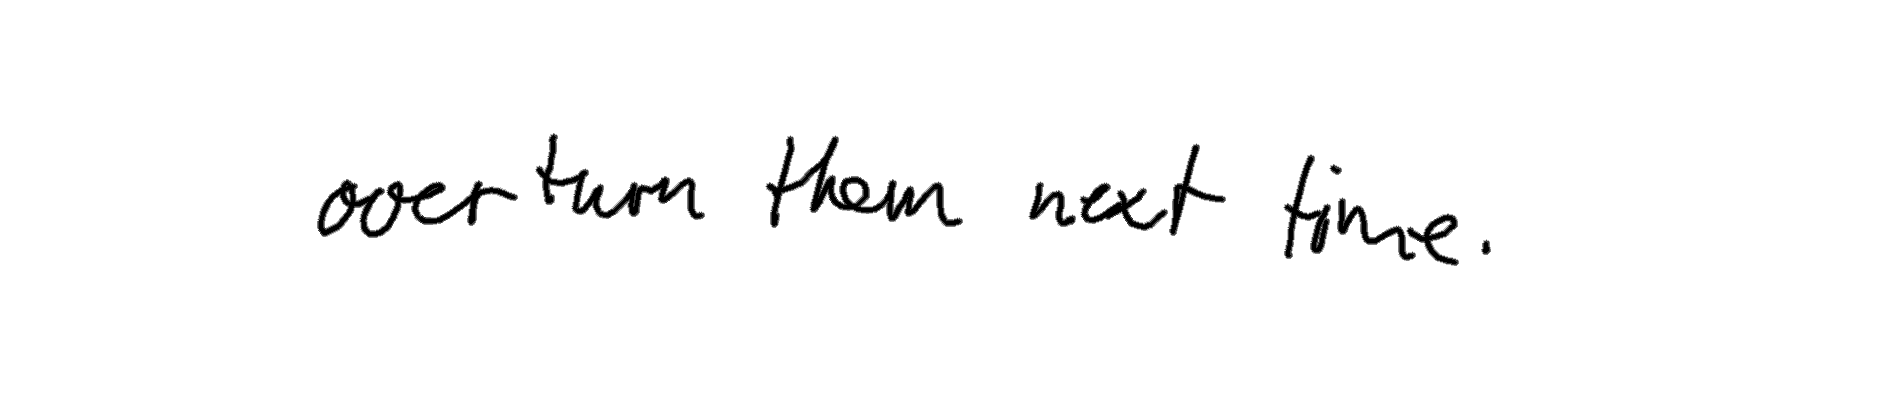 overturn them next time.